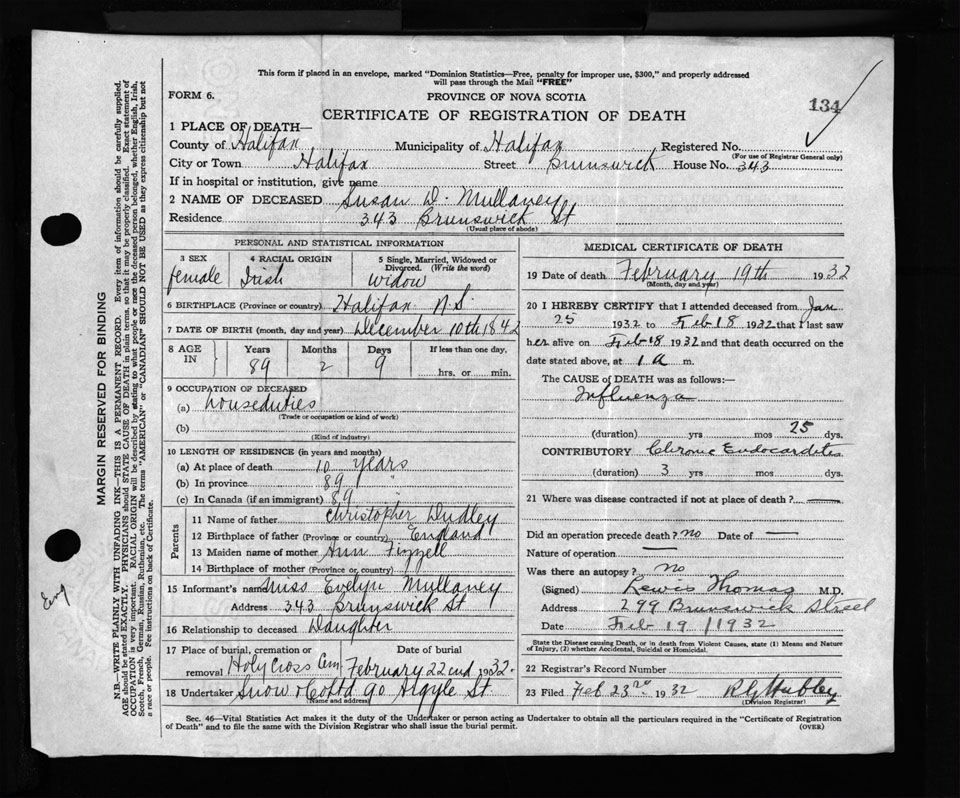 This form if placed in an envelope, marked "Dominion Statistics—Free, penalty for improper use, $300," and properly addressed
will pass through the Mail "FREE"
FORM 6.
PROVINCE OF NOVA SCOTIA
134
CERTIFICATE OF REGISTRATION OF DEATH
1 PLACE OF DEATH—
County of Halifax Municipality of Halifax Registered No.
(For use of Registrar General only)
City or Town Halifax Street Brunswick House No. 343
If in hospital or institution, give name
2 NAME OF DECEASED Susan D. Mullaney
Residence 343 Brunswick St
(Usual place of abode)
PERSONAL AND STATISTICAL INFORMATION
3 SEX 4 RACIAL ORIGIN 5 Single, Married, Widowed or
Divorced. (Write the word)
female Irish Widow
6 BIRTHPLACE (Province or country) Halifax N.S.
7 DATE OF BIRTH (month, day and year) December 10th 1842
8 AGE IN Years Months Days If less than one day,
89 2 9 hrs. or min.
9 OCCUPATION OF DECEASED
(a) houseduties
(Trade or occupation or kind of work)
(b)
(Kind of industry)
10 LENGTH OF RESIDENCE (in years and months)
(a) At place of death 10 years
(b) In province 89 "
(c) In Canada (if an immigrant) 89 "
Parents
11 Name of father Christopher Dudley
12 Birthplace of father (Province or country) England
13 Maiden name of mother Ann Fizzell
14 Birthplace of mother (Province or country)
15 Informant's name Miss Evelyn Mullaney
Address 343 Brunswick St
16 Relationship to deceased Daughter
17 Place of burial, cremation or Date of burial
removal Holy Cross Cem. February 22nd 1932.
18 Undertaker Snow & Co Ltd 90 Argyle St.
(Name and address)
MEDICAL CERTIFICATE OF DEATH
19 Date of death February 19th 1932
(Month, day and year)
20 I HEREBY CERTIFY that I attended deceased from Jan
25 1932 to Feb 18 1932 that I last saw
her alive on Feb 18 1932 and that death occurred on the
date stated above, at 1 a m.
The CAUSE OF DEATH was as follows:—
Influenza
(duration) yrs mos 25 dys.
CONTRIBUTORY Chronic Endocarditis
(duration) 3 yrs mos dys.
21 Where was disease contracted if not at place of death? —
Did an operation precede death? no Date of —
Nature of operation —
Was there an autopsy? no
(Signed) Lewis Thomas M.D.
Address 299 Brunswick Street
Date Feb 19/1932
State the Disease causing Death, or in death from Violent Causes, state (1) Means and Nature
of Injury, (2) whether Accidental, Suicidal or Homicidal.
22 Registrar's Record Number
23 Filed Feb 23rd 1932 R G Hubley
(Division Registrar)
Sec. 46—Vital Statistics Act makes it the duty of the Undertaker or person acting as Undertaker to obtain all the particulars required in the "Certificate of Registration
of Death" and to file the same with the Division Registrar who shall issue the burial permit. (OVER)
MARGIN RESERVED FOR BINDING
N.B.—WRITE PLAINLY WITH UNFADING INK—THIS IS A PERMANENT RECORD. Every item of information should be carefully supplied.
AGE should be stated EXACTLY. PHYSICIANS should STATE CAUSE OF DEATH in plain terms, so that it may be properly classified. Exact statement of
OCCUPATION is very important. RACIAL ORIGIN will be described by stating to what people or race the deceased person belonged, whether English, Irish,
Scotch, French, German, Russian, Ruthenian, etc. The terms "AMERICAN" or "CANADIAN" SHOULD NOT BE USED as they express citizenship but not
a race or people. See instructions on back of Certificate.
Eng